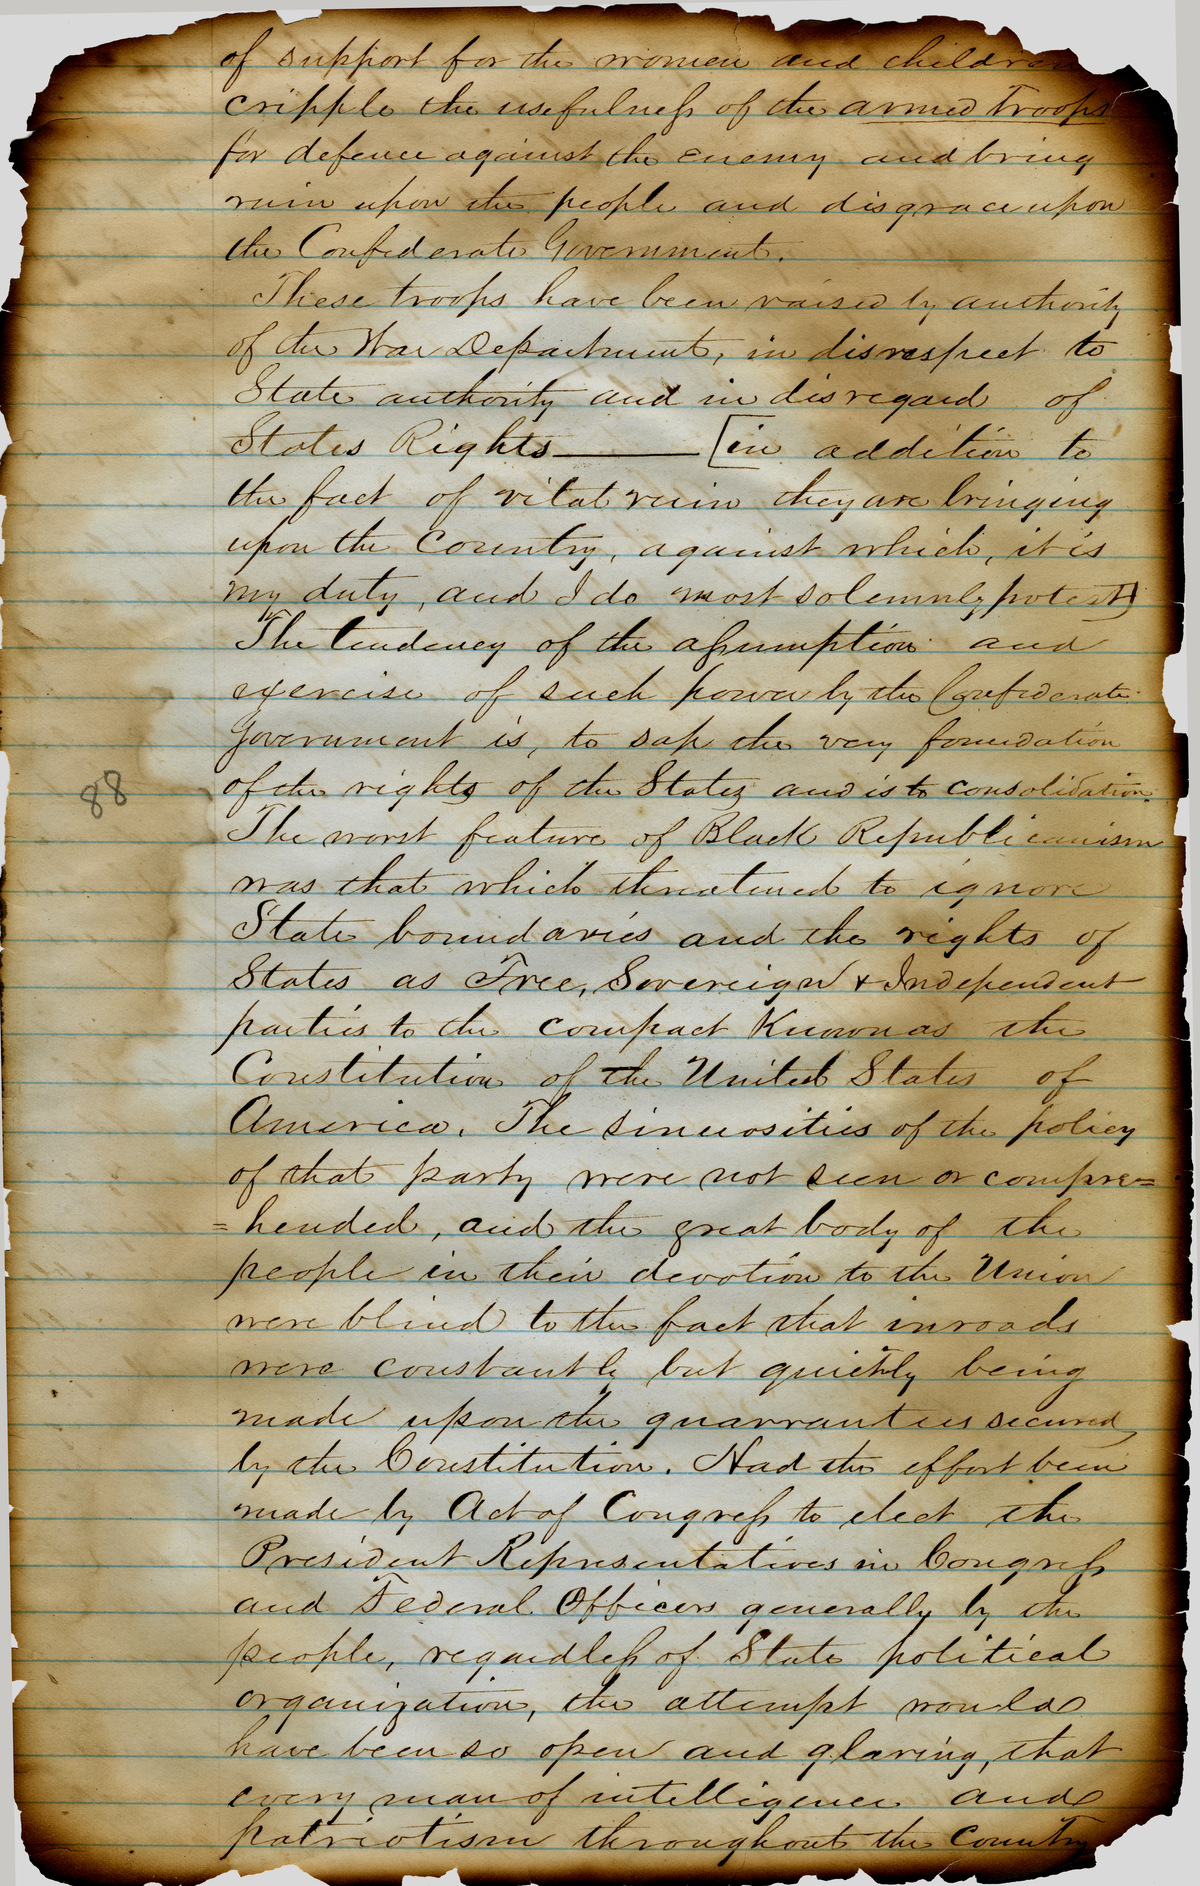 of support for the women and children
cripple the usefulness of the armed troops
for defence against the enemy and bring
ruin upon the people and disgrace upon
the Confederate Government.
These troops have been raised by authority
of the War Department, in disrespect to
State authority and in disregard of
States Rights ——— [in addition to
the fact of vital ruin they are bringing
upon the country, against which, it is
my duty, and I do most solemnly protest]
"The tendency of the assumption and
exercise of such power by the Confederate
Government is, to sap the very foundation
of the rights of the States and is to consolidation.
88
The worst feature of Black Republicanism
was that which threatened to ignore
State boundaries and the rights of
States as Free, Sovereign & Independent
parties to the compact Known as the
Constitution of the United States of
America. The sinuosities of the policy
of that party were not seen or compre=
=hended, and the great body of the
people in their devotion to the Union
were blind to the fact that inroads
were constantly but quietly being
made upon the guarrantees secured
by the Constitution. Had the effort been
made by Act of Congress to elect the
President Representatives in Congress
and Federal Officers generally by the
people, regardless of State political
organization, the attempt would
have been so open and glaring, that
every man of intelligence and
patriotism throughout the country